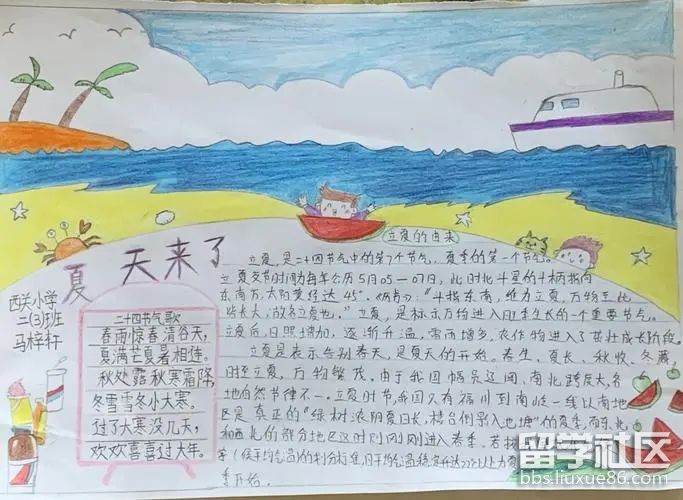 夏天来了
西关小学
二(3)班
马梓轩
二十四节气歌
春雨惊春清谷天，
夏满芒夏暑相连。
秋处露秋寒霜降，
冬雪雪冬小大寒。
过了大寒没几天，
欢欢喜喜过大年。
立夏的由来
立夏，是二十四节气中的第7个节气，夏季的第一个节气。
立夏交节时间为每年公历5月05—07日，此时北斗星的斗柄指向
东南方，太阳黄经达45°。："斗指东南，维为立夏，万物至此
皆长大，故名立夏也。"立夏，是标示万物进入旺季生长的一个重要节气。
立夏后，日照增加，逐渐升温，雷雨增多，农作物进入了茁壮成长阶段。
立夏是表示告别春天，是夏天的开始。春生、夏长、秋收、冬藏，
时至立夏，万物繁茂。由于我国幅员辽阔、南北跨度大，各
地自然节律不一。立夏时节，我国只有福州到南岭一线以南地
区是真正的"绿树浓阴夏日长，楼台倒影入池塘"的夏季，而东北
和西北的部分地区这时则刚刚进入春季。若按
的划分标准，日平均气温稳定升达22℃以上为夏
季开始。
留学社区
bbs.liuxue86.com